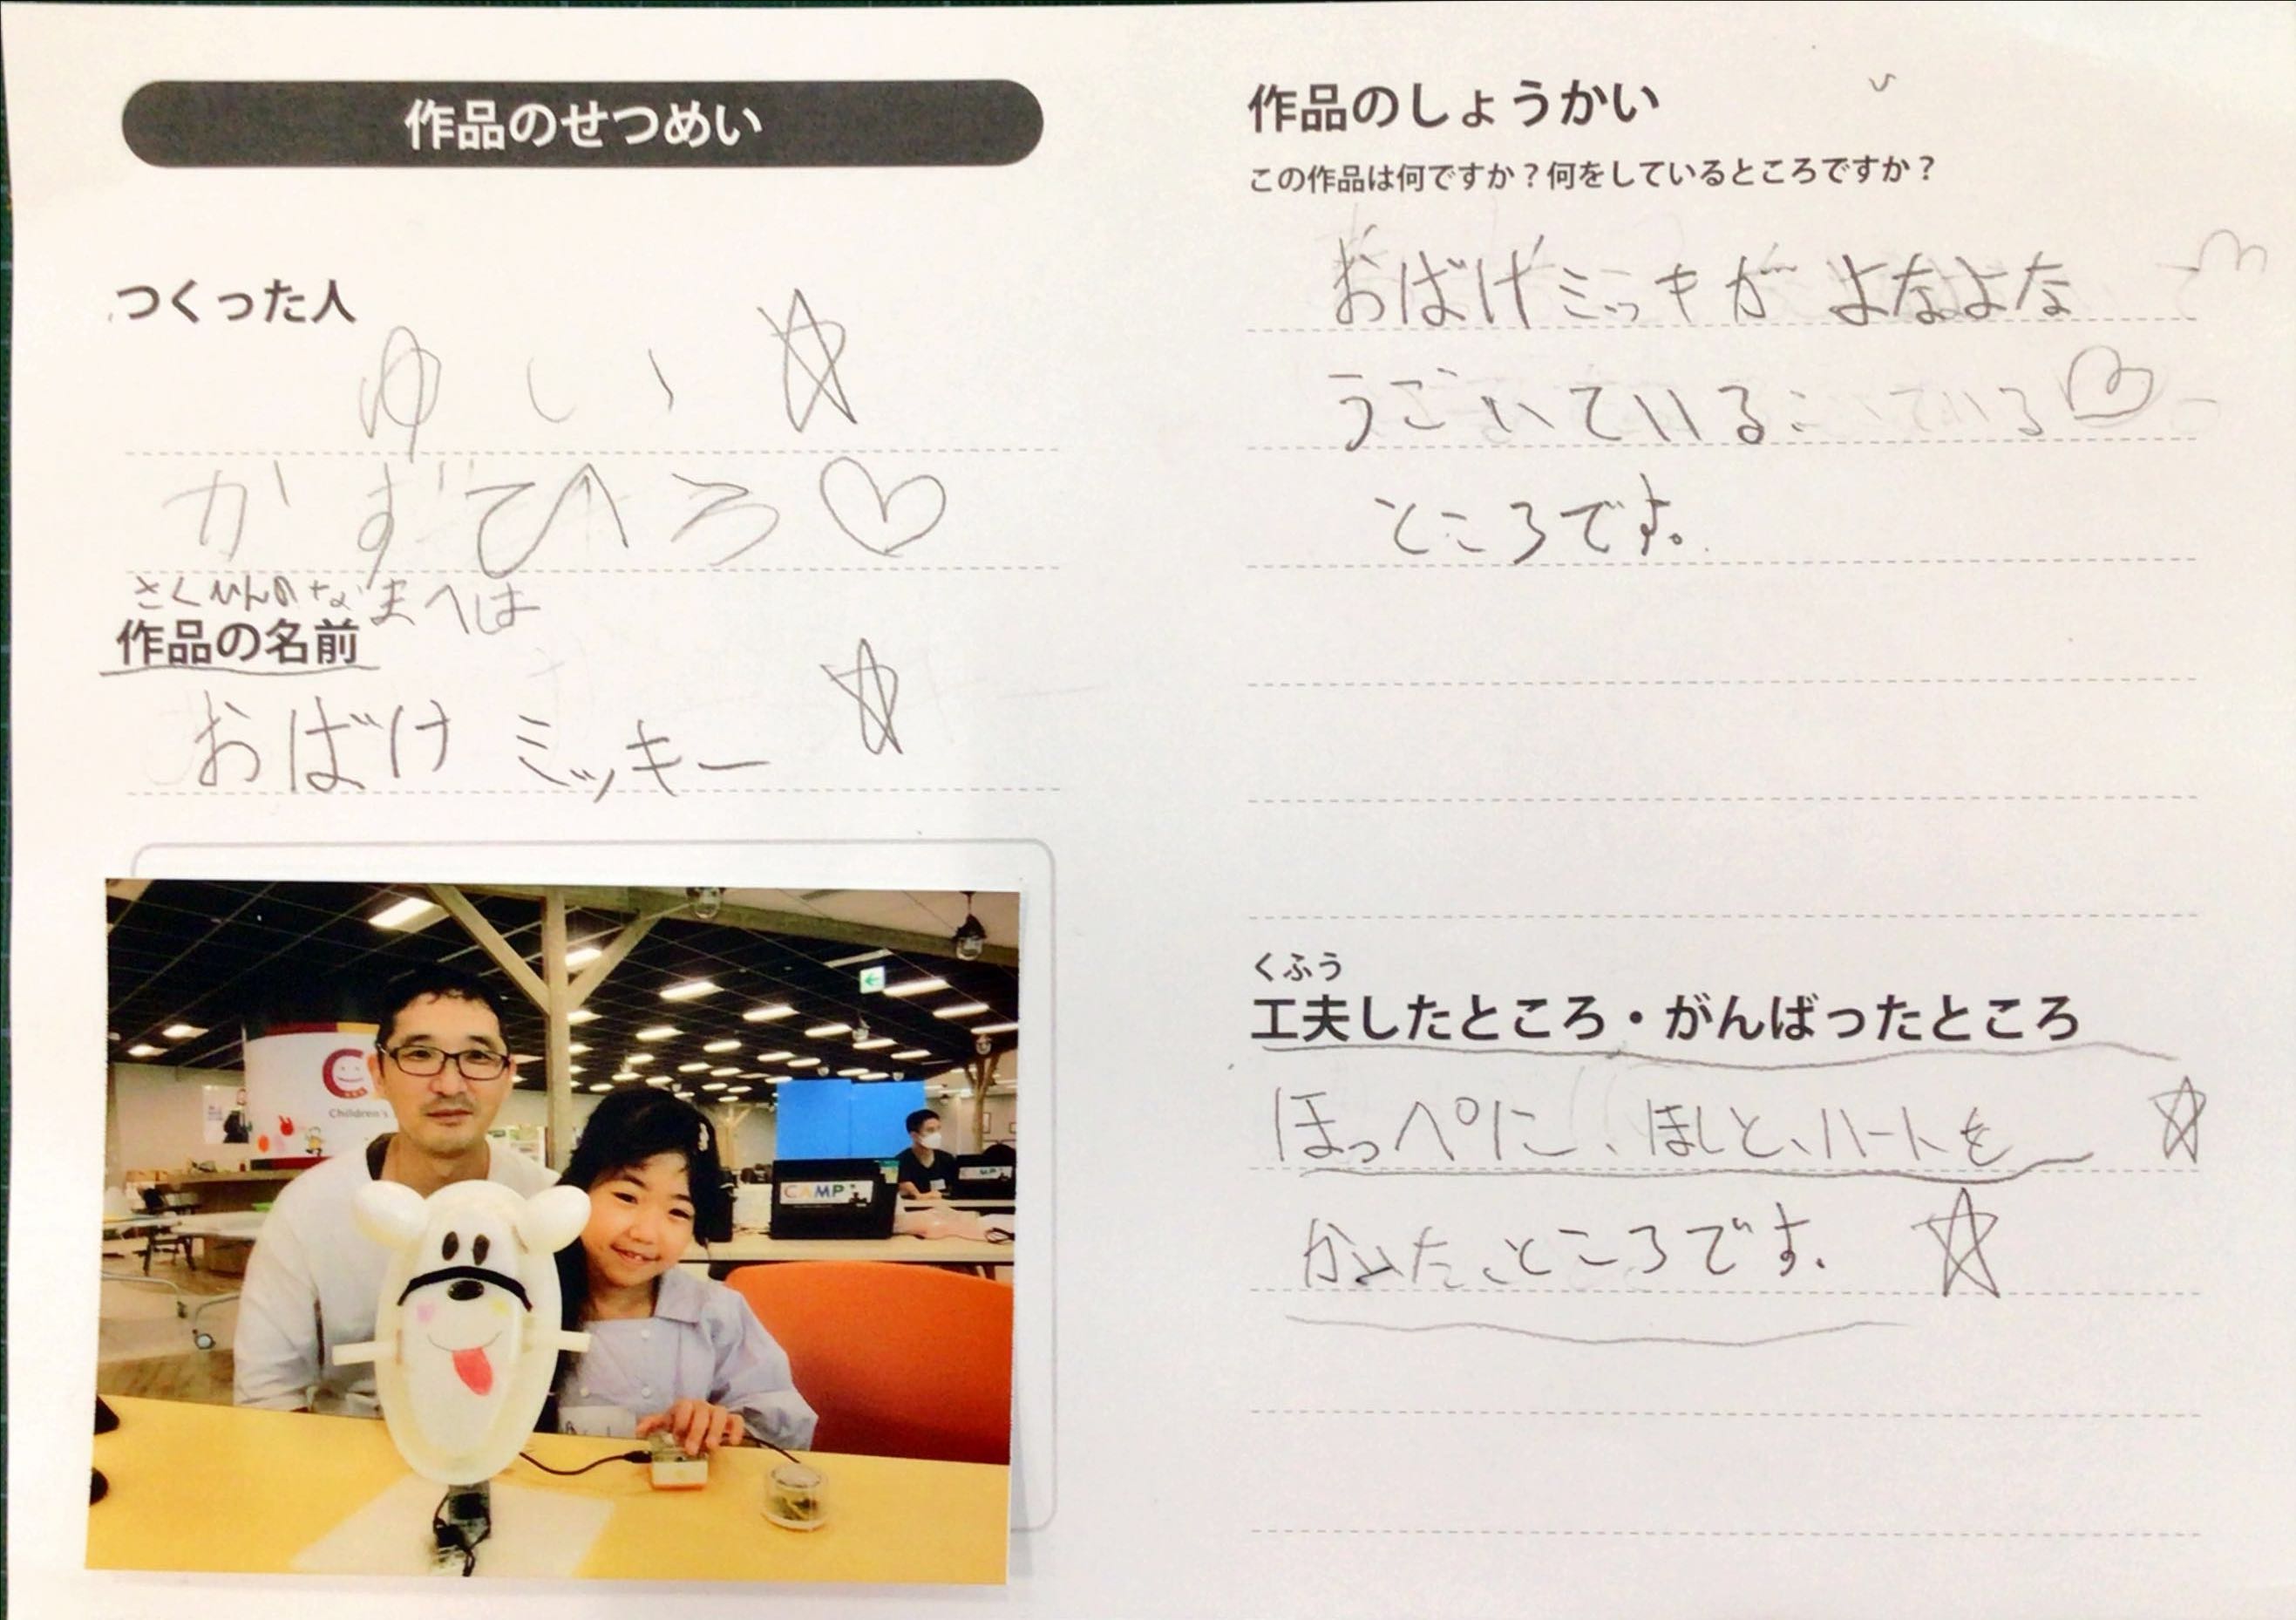 作品のせつめい
つくった人
ゆい☆
かずひろ♡
さくひんのなまへは
作品の名前
おばけミッキー☆
Children's
CAMP
作品のしょうかい
この作品は何ですか？何をしているところですか？
おばげミッキがよなよな
うごいている♡
ところです。
くふう
工夫したところ・がんばったところ
ほっぺに、ほしと、ハートを☆
かいたところです.☆